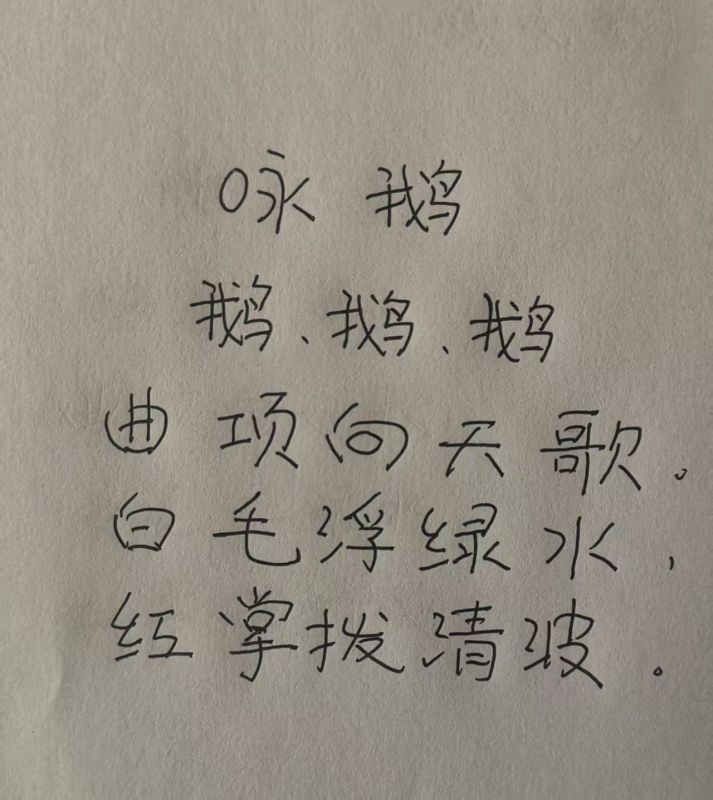 咏鹅
鹅、鹅、鹅
曲项向天歌。
白毛浮绿水,
红掌拨清波。